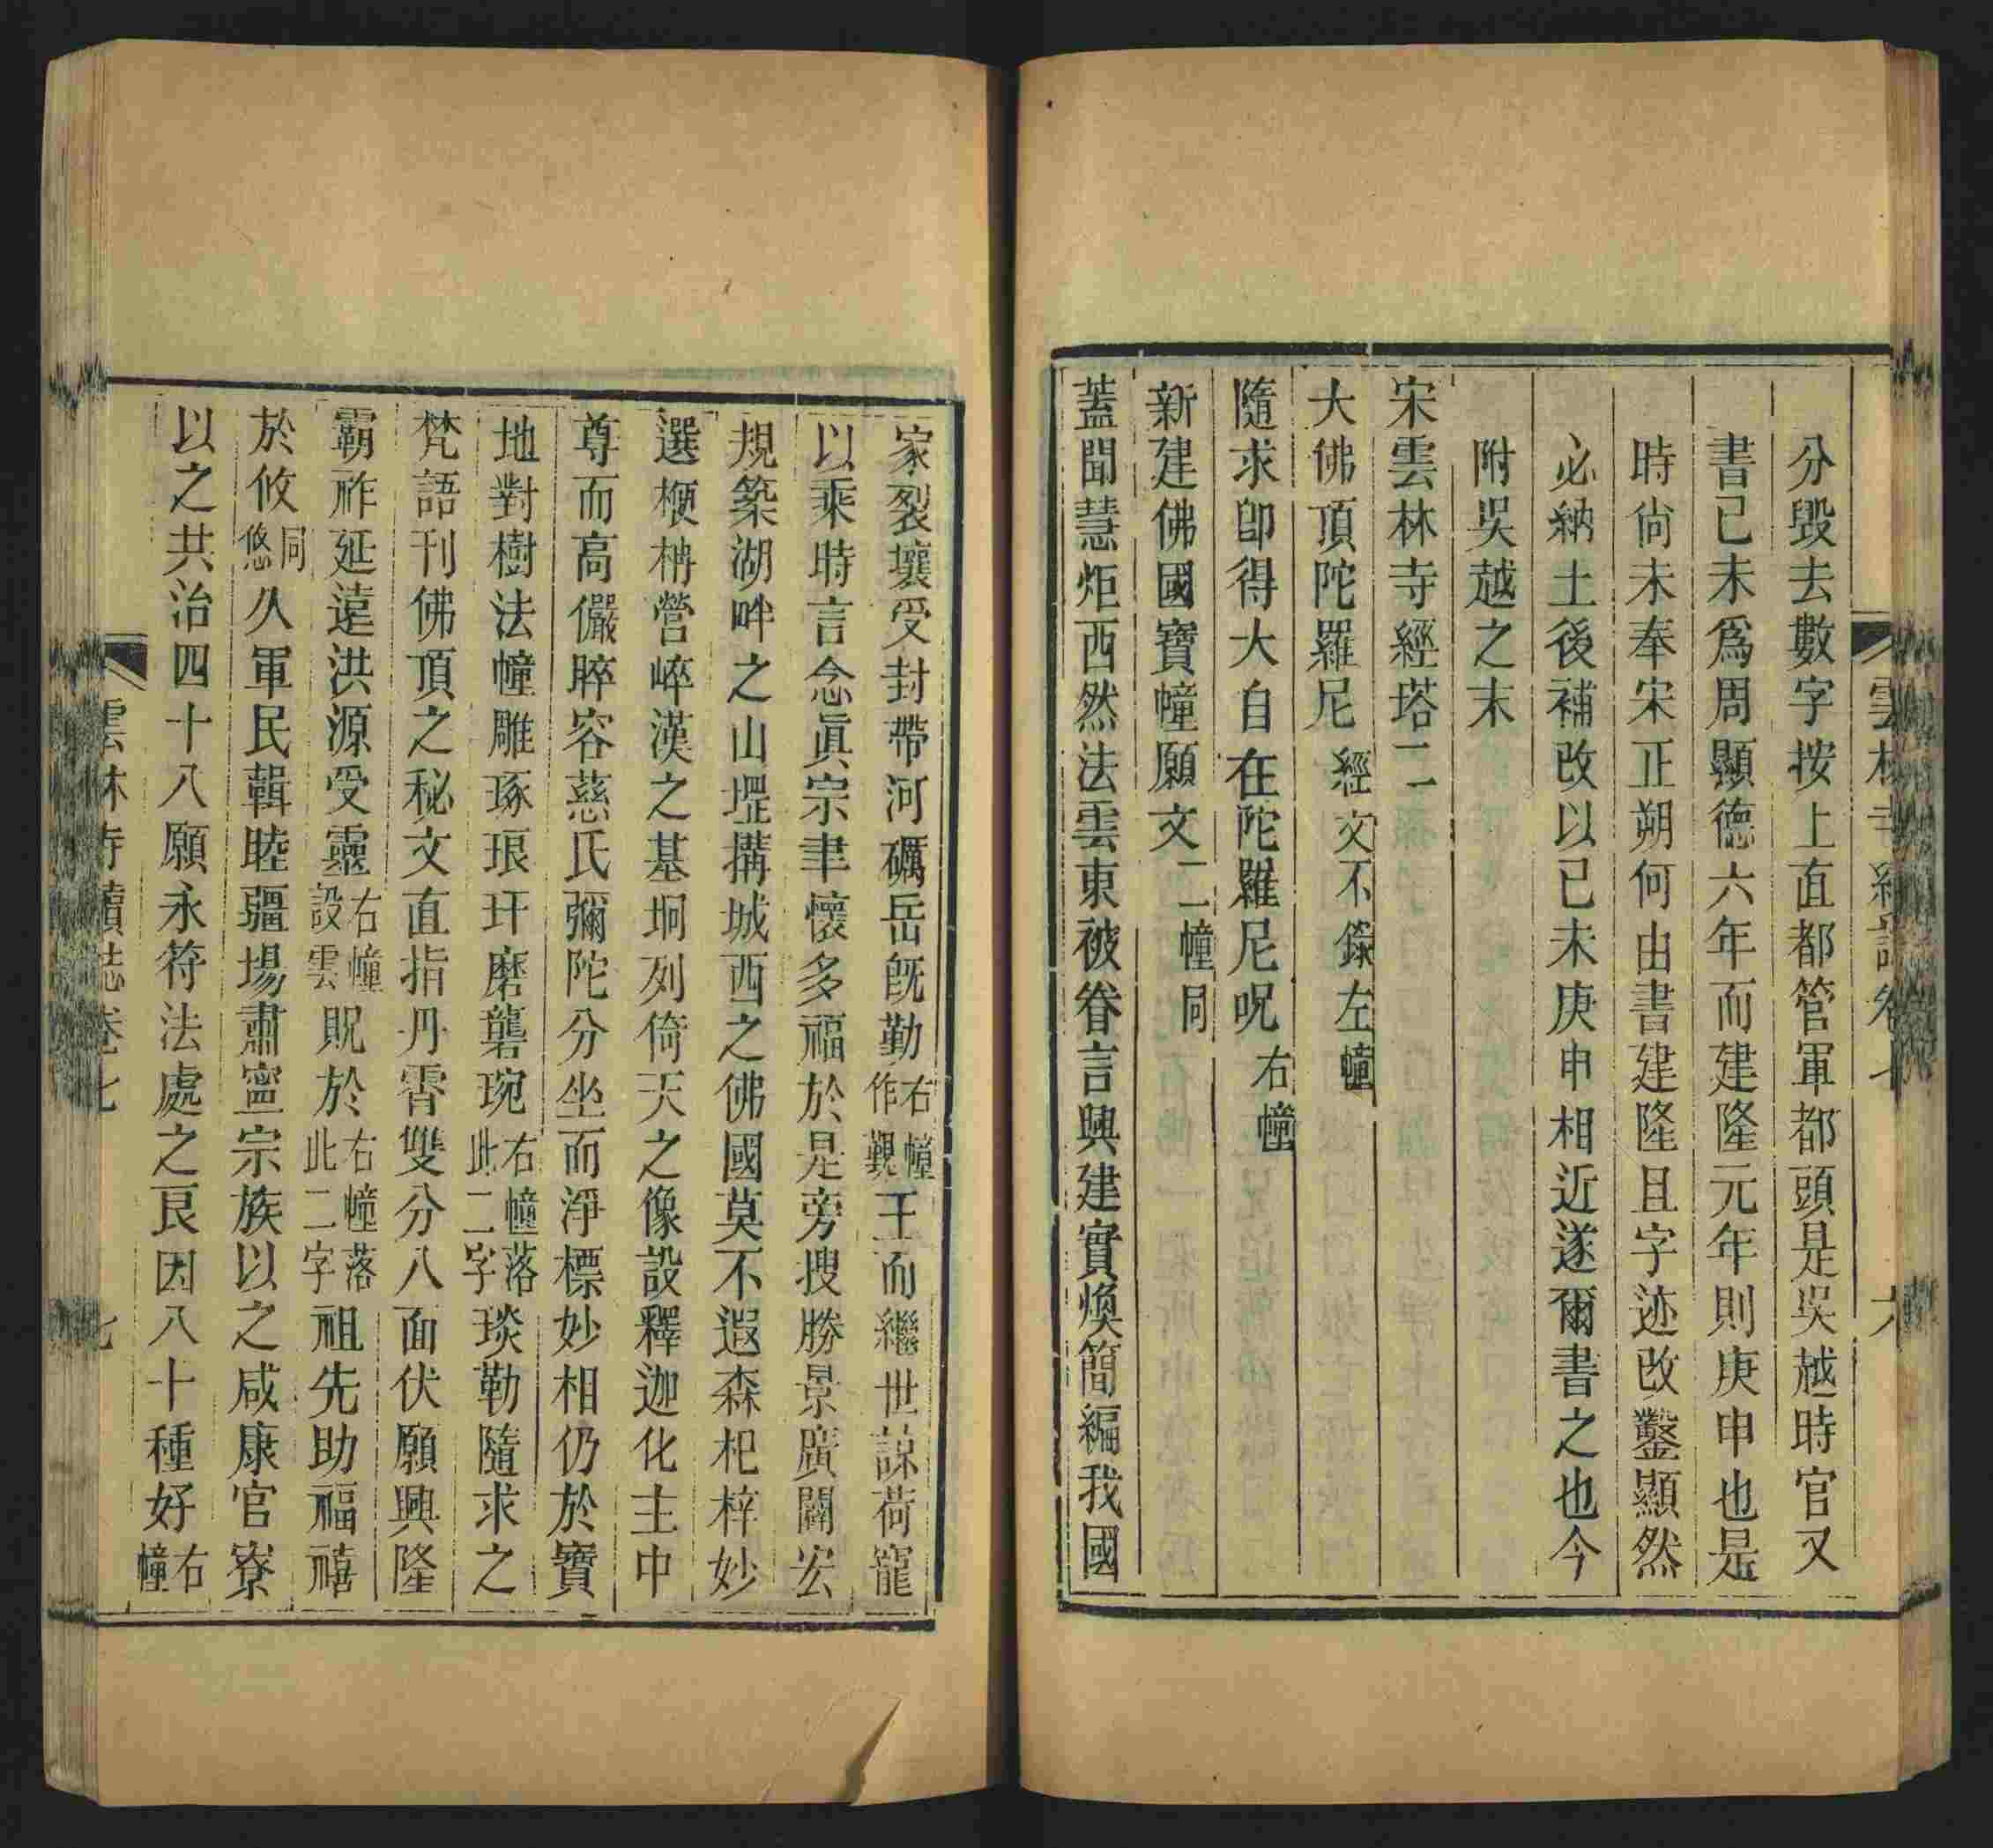 分毀去數字按上直都管軍都頭是吳越時官又
書己未爲周顯德六年而建隆元年則庚申也是
時尙未奉宋正朔何由書建隆且字迹改鑿顯然
必納土後補改以己未庚申相近遂爾書之也今
附吳越之末
宋雲林寺經塔二
大佛頂陀羅尼 經文不錄左幢
隨求卽得大自在陀羅尼呪 右幢
新建佛國寶幢願文 二幢同
蓋聞慧炬西然法雲東被眷言興建實煥簡編我國
家裂壤受封帶河礪岳旣勤右幢作觀王而繼世諒荷寵
以乘時言念眞宗聿懷多福於是旁搜勝景廣闢宏
規築湖畔之山壥搆城西之佛國莫不遐森杞梓妙
選楩柟營崪漢之基坰列倚天之像設釋迦化主中
尊而高儼睟容慈氏彌陀分坐而淨標妙相仍於寶
地對樹法幢雕琢琅玕磨礱琬右幢落此二字琰勒隨求之
梵語刊佛頂之秘文直指丹霄雙分八面伏願興隆
霸祚延遠洪源受靈右幢設雲貺於右幢落此二字祖先助福禧
於攸同悠久軍民輯睦疆場肅寧宗族以之咸康官寮
以之共治四十八願永符法處之良因八十種好右幢
雲林寺續志卷七
七